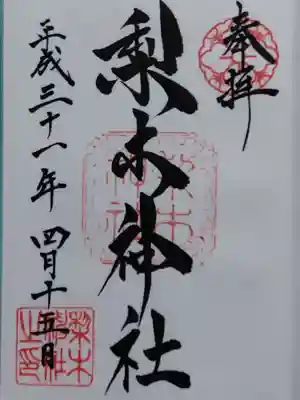 奉拝
梨木神社
平成三十一年 四月十五日
梨木神社
梨木神社之印